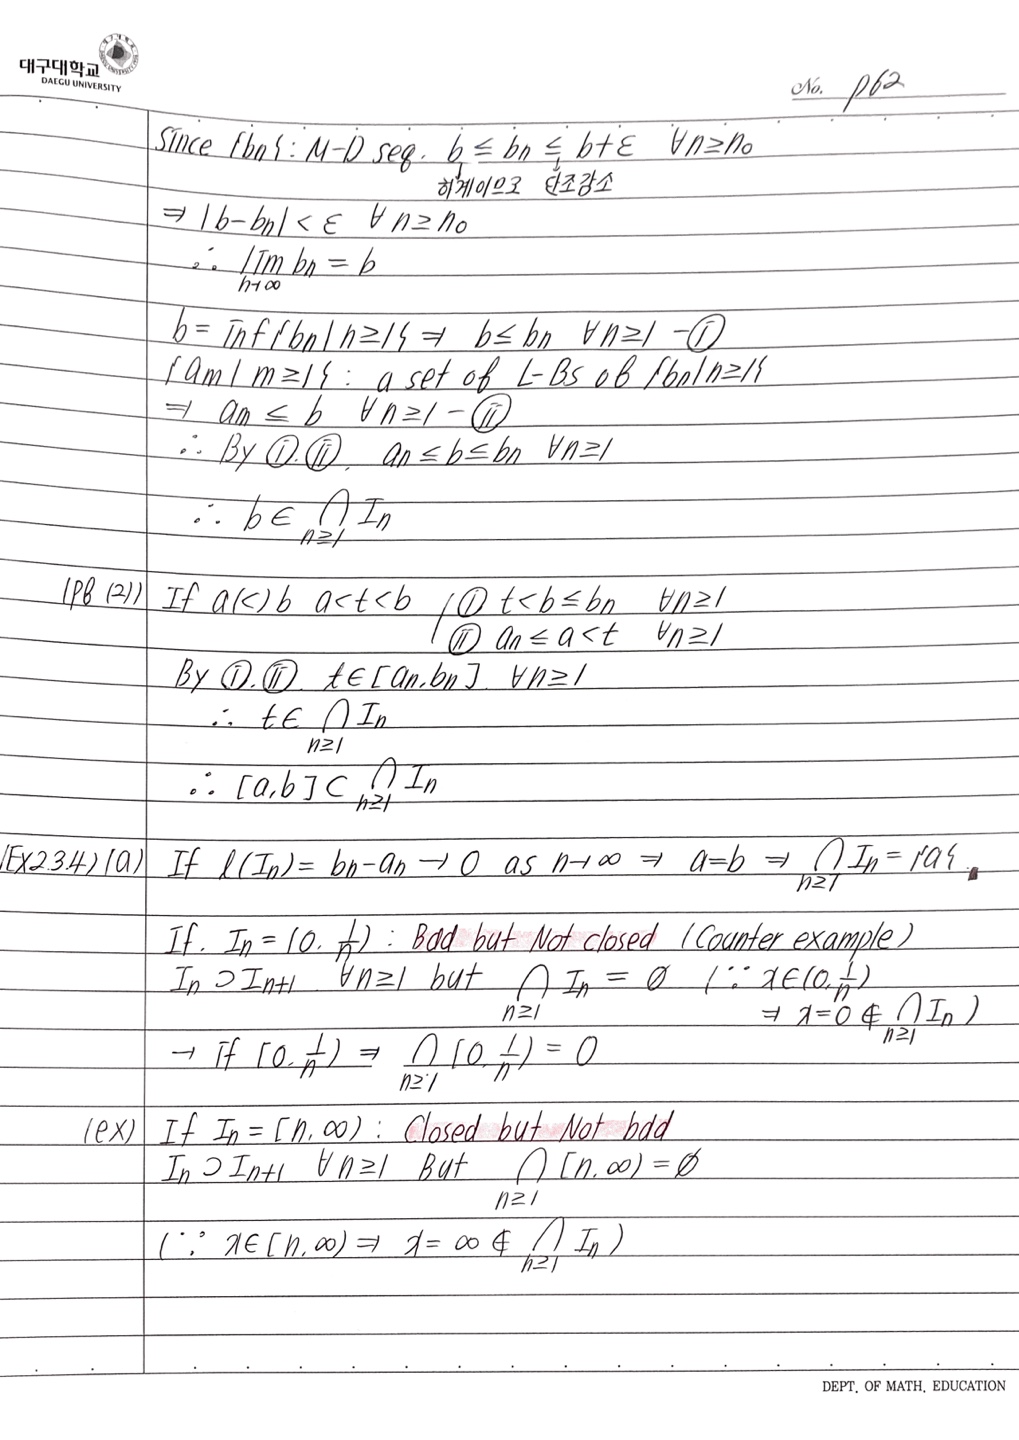 대구대학교
DAEGU UNIVERSITY
No. p62
Since {bn}: M-D seq. b ≤ bn ≤ b+ε ∀n≥n₀
하계이므로 단조감소
⇒ |b-bn| < ε ∀n≥n₀
∴ lim bn = b
n→∞
b = inf{bn| n≥1} ⇒ b≤bn ∀n≥1 - ⓘ
{am| m≥1}: a set of L-Bs of {bn|n≥1}
⇒ an ≤ b ∀n≥1 - ⓘⓘ
∴ By ⓘ.ⓘⓘ. an≤b≤bn ∀n≥1
∴ b∈ ⋂ In
n≥1
(Pf (2)) If a(<)b a<t<b ( ⓘ t<b≤bn ∀n≥1
ⓘⓘ an≤a<t ∀n≥1
By ⓘ.ⓘⓘ. t∈[an.bn]. ∀n≥1
∴ t∈ ⋂ In
n≥1
∴ [a,b]⊂ ⋂ In
n≥1
(Ex2.3.4) (a) If l(In)= bn-an → 0 as n→∞ ⇒ a=b ⇒ ⋂ In = {a}.
n≥1
If. In = (0. 1/n): Bdd but Not closed (Counter example)
In⊃In+1 ∀n≥1 but ⋂ In = ∅ (∵ x∈(0.1/n)
n≥1 ⇒ x=0 ∉ ⋂ In)
n≥1
→ if [0. 1/n) ⇒ ⋂ [0. 1/n) = 0
n≥1
(ex) If In = [n.∞): Closed but Not bdd
In⊃In+1 ∀n≥1 But ⋂ [n.∞) = ∅
n≥1
(∵ x∈[n.∞) ⇒ x=∞ ∉ ⋂ In)
n≥1
DEPT. OF MATH. EDUCATION